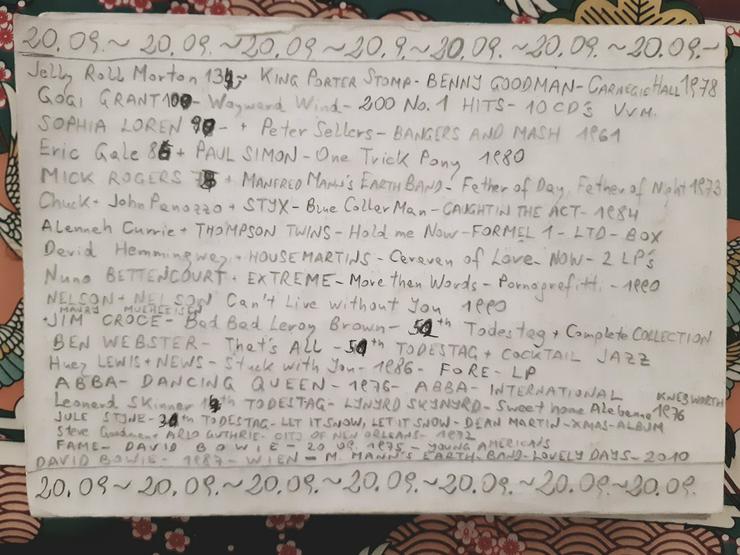 20.09.~ 20.09.~20.09.~20.9.~20.09.~20.09.~20.09.~
Jelly Roll Morton 134~ KING PORTER STOMP- BENNY GOODMAN- CARNEGIE HALL 1978
GOGI GRANT 100- Wayward Wind- 200 No. 1 HITS- 10 CD's V.V.M.
SOPHIA LOREN 90- + Peter Sellers- BANGERS AND MASH 1961
Eric Gale 86+ PAUL SIMON- One Trick Pony 1980
MICK ROGERS + MANFRED MANN'S EARTH BAND- Father of Day, Father of Night 1973
Chuck+ John Panozzo + STYX- Blue Collar Man- CAUGHT IN THE ACT- 1984
Alenneh Currie+ THOMPSON TWINS- Hold me Now- FORMEL 1- LTD- BOX
David Hemmingway+ HOUSEMARTINS- Caravan of Love- NOW- 2 LP's
Nuno BETTENCOURT+ EXTREME- More than Words- Pornografitti- 1990
NELSON+ NELSON Can't Live without You 1990
+JIM CROCE- Bad Bad Leroy Brown- th Todestag + Complete COLLECTION
BEN WEBSTER- That's All - th TODESTAG + COCKTAIL JAZZ
Huey LEWIS+ NEWS- Stuck with You- 1986- FORE- LP
ABBA- DANCING QUEEN- 1976- ABBA- INTERNATIONAL
KNEBWORTH
Leonard Skinner th TODESTAG- LYNYRD SKYNYRD- Sweet home Alabama 1976
JULE STYNE- 30th TODESTAG- LET IT SNOW, LET IT SNOW- DEAN MARTIN- XMAS- ALBUM
Steve Goodman+ ARLO GUTHRIE- CITY OF NEW ORLEANS- 1972
FAME- DAVID BOWIE- 20.09.1975- YOUNG AMERICANS
DAVID BOWIE- 1987- WIEN- M. MANN'S EARTH- BAND- LOVELY DAYS- 2010
20.09.~ 20.09.~20.09.~20.09.~20.09.~20.09.~20.09.